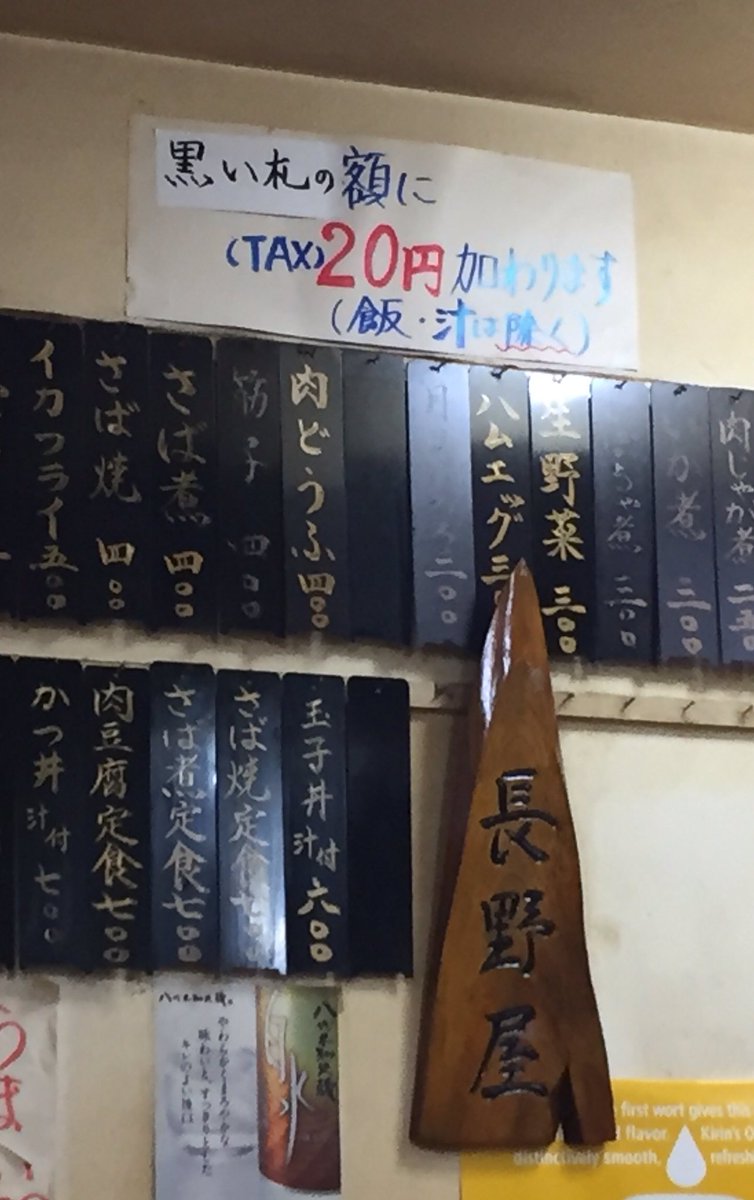 黒い札の額に
(TAX)20円加わります
(飯・汁は除く)
肉じゃが煮
いか煮 三〇〇
ちゃ煮 三〇〇
生野菜 三〇〇
ハムエグ 三
二〇〇
肉どうふ 四〇〇
筋子 四〇〇
さば煮 四〇〇
さば焼 四〇〇
イカフライ 五〇〇
玉子丼 汁付 六〇〇
さば焼定食 七〇〇
さば煮定食 七〇〇
肉豆腐定食 七〇〇
かつ丼 汁付 七〇〇
長野屋
うまい
やわらかくまろやかな
味わいと、すっきりとした
キレのよい後味
first wort gives this
flavor. Kirin's O
distinctively smooth, refresh